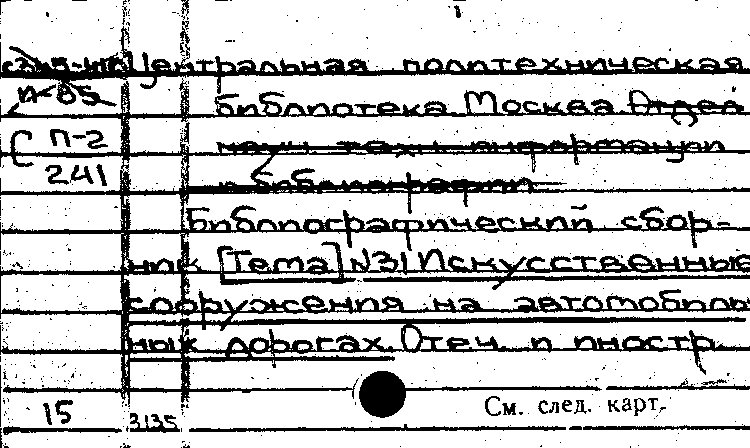 Центральная политехническая
П-85 библиотека Москва. Отдел
С П-2 научн. техн. информации
241 и библиографии
Библиографический сбор-
ник [Тема] №31 Искусственные
сооружения на автомобиль
ных дорогах. Отеч. и иностр.
15 3135 См. след. карт.